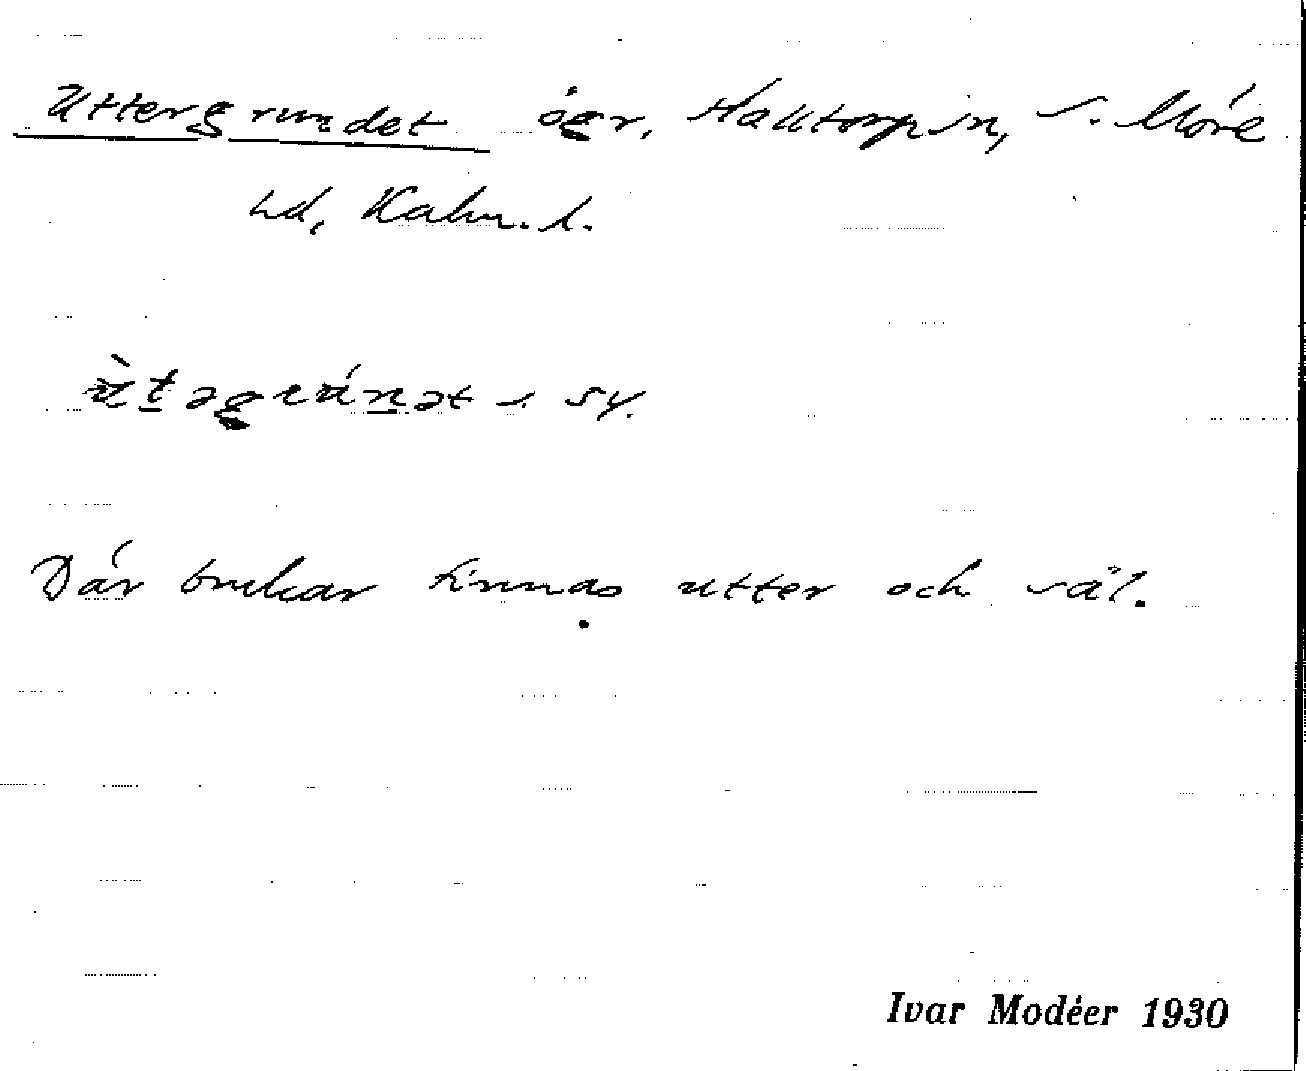 Uttergrundet ögr, Halltorp sn, S. Möre
hd, Kalm. l.
ùtəgrúnət s. sy.
Där brukar finnas utter och säl.
Ivar Modéer 1930